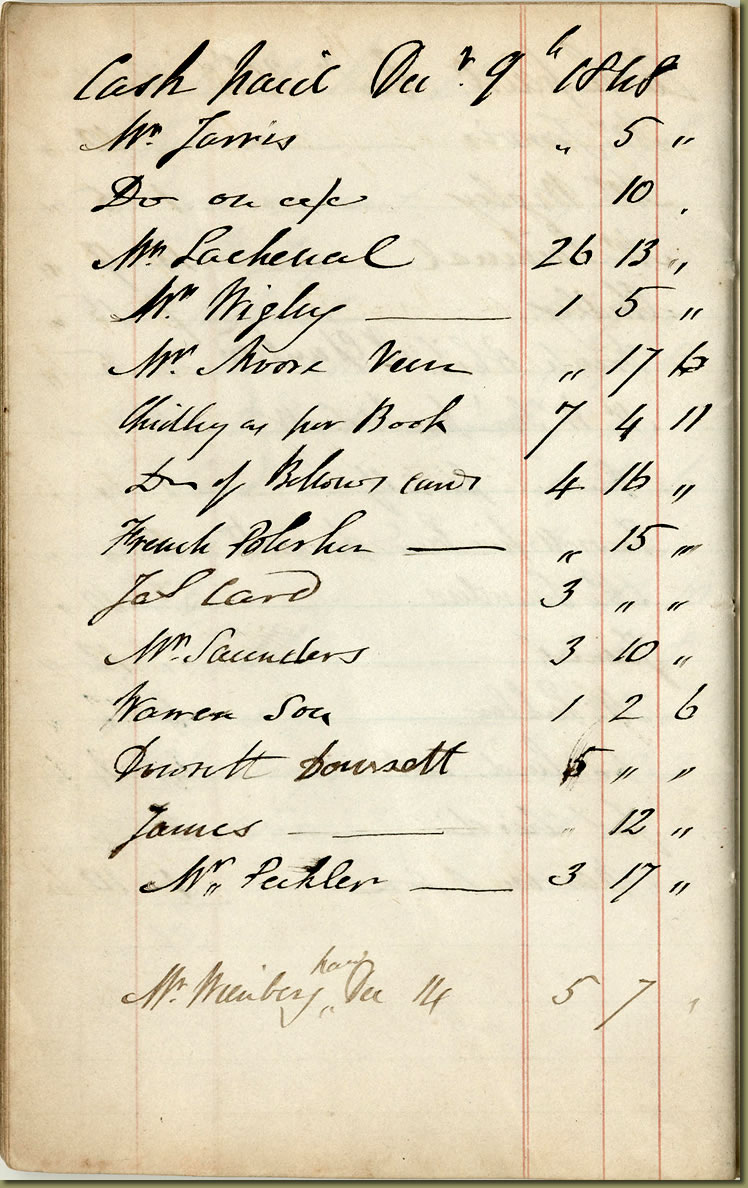 Cash paid Decr. 9th 1848
Mr. Jarvis „ 5 „
Do on a/c 10 „
Mr. Lachenal 26 13 „
Mr. Wigby — 1 5 „
Mr. Moore „ 17 6
Chidley as per Book 7 4 11
Do of Bellows 4 16 „
French Polisher — „ 15 „
Card 3 „ „
Mr. Saunders 3 10 „
Warren Son 1 2 6
Dowsett Dowsett 5 „ „
James — — „ 12 „
Mr. Pichler — 3 17 „
paid
Mr. Weinberg „ Dec 14 5 7 „